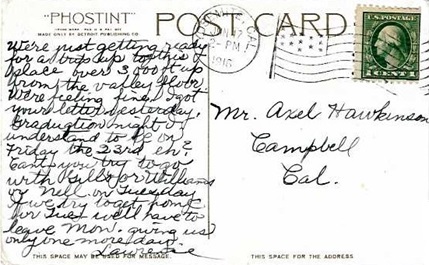 "PHOSTINT" POST CARD
MADE ONLY BY DETROIT PUBLISHING CO.
We're just getting ready
for a trip up to this
place over 3,000 ft up
from the valley floor.
We're feeling fine. I got
your letter yesterday.
Graduation night I
understand to be on
Friday the 23rd eh?
Can't you try to go
with Bills or Williams
or Nell on Tuesday
If we try to get home
for Tues we'll have to
leave Mon. giving us
only one more day.
Lawrence
THIS SPACE MAY BE USED FOR MESSAGE.
PM
1916
U.S. POSTAGE
1 CENT 1
Mr. Axel Hawkinson
Campbell
Cal.
THIS SPACE IS FOR THE ADDRESS